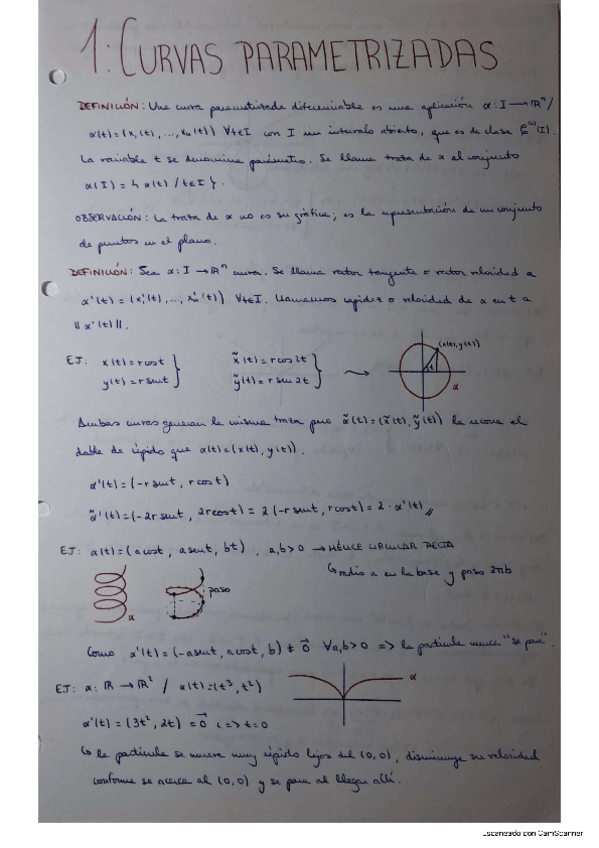 1: CURVAS PARAMETRIZADAS
DEFINICIÓN: Una curva parametrizada diferenciable es una aplicación α: I → ℝⁿ /
α(t) = (x₁(t), ..., xₙ(t)) ∀t∈I con I un intervalo abierto, que es de clase C^∞(I).
La variable t se denomina parámetro. Se llama traza de α al conjunto
α(I) = { α(t) / t∈I }.
OBSERVACIÓN: La traza de α no es su gráfica; es la representación de un conjunto
de puntos en el plano.
DEFINICIÓN: Sea α: I → ℝⁿ curva. Se llama vector tangente o vector velocidad a
α'(t) = (x₁'(t), ..., xₙ'(t)) ∀t∈I. Llamamos rapidez o velocidad de α en t a
‖α'(t)‖.
EJ: x(t) = r cost } x̃(t) = r cos2t }
y(t) = r sent } ỹ(t) = r sen 2t } ⇝ (x(t), y(t)) t α
Ambas curvas generan la misma traza pero α̃(t) = (x̃(t), ỹ(t)) la recorre el
doble de rápido que α(t) = (x(t), y(t)).
α'(t) = (-r sent, r cost)
α̃'(t) = (-2r sent, 2r cost) = 2 (-r sent, r cost) = 2 · α'(t) //
EJ: α(t) = (a cost, a sent, bt), a,b>0 → HÉLICE CIRCULAR RECTA
↳ radio a en la base y paso 2πb
α paso
Como α'(t) = (-a sent, a cost, b) ≠ 0⃗ ∀a,b>0 => la partícula nunca "se para".
EJ: α: ℝ → ℝ² / α(t) = (t³, t²) α
α'(t) = (3t², 2t) = 0⃗ <=> t=0
↳ la partícula se mueve muy rápido lejos del (0,0), disminuye su velocidad
conforme se acerca al (0,0) y se para al llegar allí.
Escaneado con CamScanner